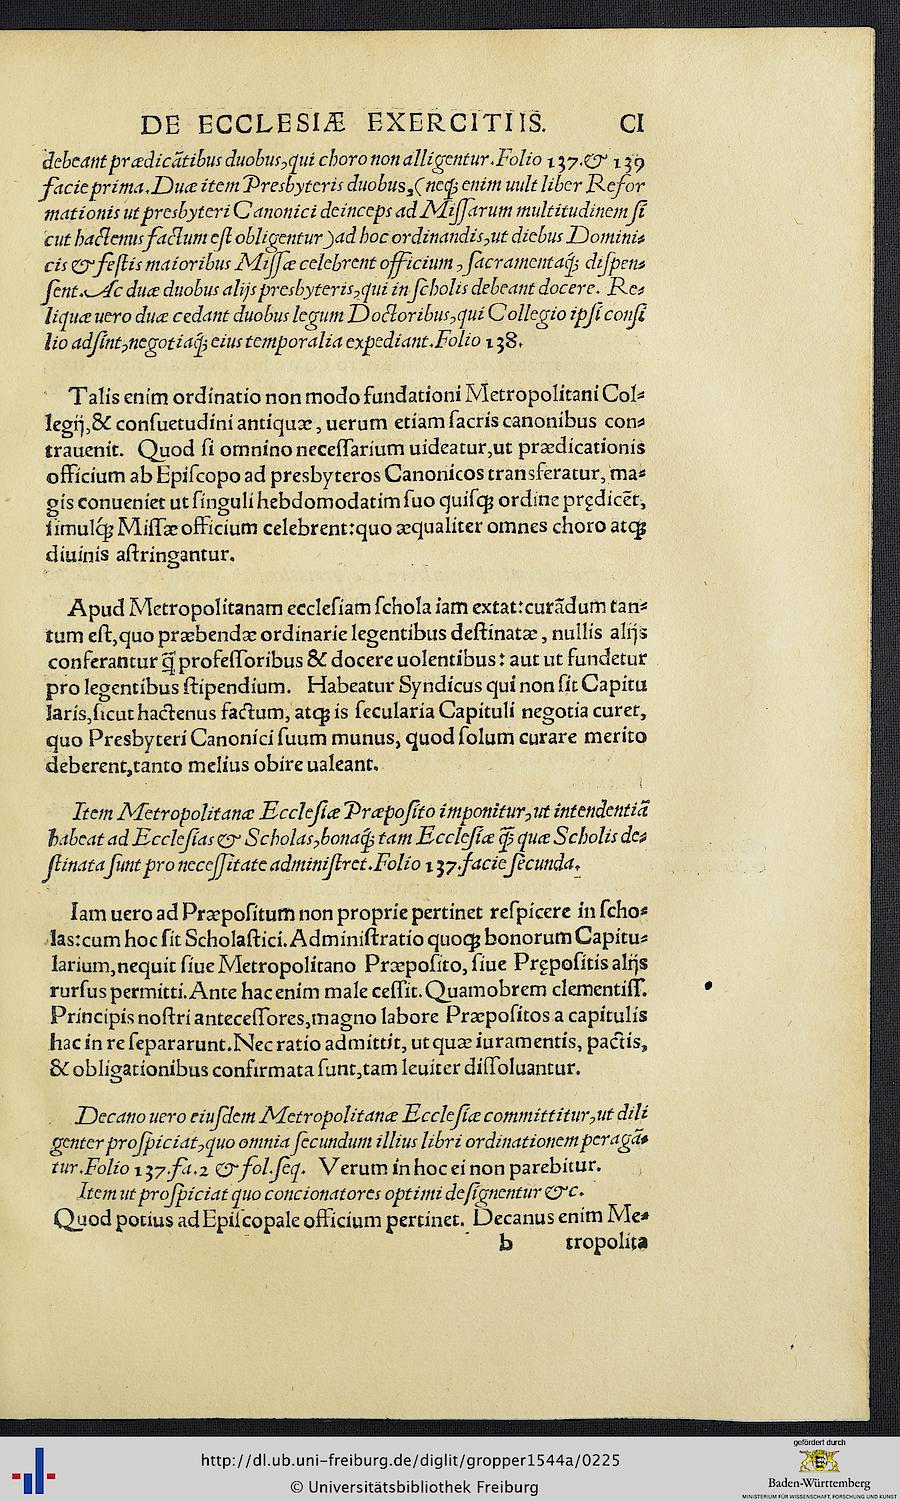 DE ECCLESIÆ EXERCITIIS. CI
debeant prædicãtibus duobus, qui choro non alligentur. Folio 137. & 139
facie prima. Duæ item Presbyteris duobus, (neqꝫ enim uult liber Refor
mationis ut presbyteri Canonici deinceps ad Miſſarum multitudinem ſi
cut hactenus factum eſt obligentur) ad hoc ordinandis, ut diebus Domini⸗
cis & feſtis maioribus Miſſæ celebrent officium, ſacramentaqꝫ diſpen⸗
ſent. Ac duæ duobus alijs presbyteris, qui in ſcholis debeant docere. Re⸗
liquæ uero duæ cedant duobus legum Doctoribus, qui Collegio ipſi conſi
lio adſint, negotiaqꝫ eius temporalia expediant. Folio 138.
Talis enim ordinatio non modo fundationi Metropolitani Col⸗
legij, & conſuetudini antiquæ, uerum etiam ſacris canonibus con⸗
trauenit. Quod ſi omnino neceſſarium uideatur, ut prædicationis
officium ab Epiſcopo ad presbyteros Canonicos transferatur, ma⸗
gis conueniet ut ſinguli hebdomodatim ſuo quiſqꝫ ordine prędicẽt,
ſimulqꝫ Miſſæ officium celebrent: quo æqualiter omnes choro atqꝫ
diuinis aſtringantur.
Apud Metropolitanam eccleſiam ſchola iam extat: curãdum tan⸗
tum eſt, quo præbendæ ordinarie legentibus deſtinatæ, nullis alijs
conferantur q̃ profeſſoribus & docere uolentibus: aut ut fundetur
pro legentibus ſtipendium. Habeatur Syndicus qui non ſit Capitu
laris, ſicut hactenus factum, atqꝫ is ſecularia Capituli negotia curet,
quo Presbyteri Canonici ſuum munus, quod ſolum curare merito
deberent, tanto melius obire ualeant.
Item Metropolitanæ Eccleſiæ Præpoſito imponitur, ut intendentiã
habeat ad Eccleſias & Scholas, bonaqꝫ tam Eccleſiæ q̃ quæ Scholis de⸗
ſtinata ſunt pro neceſſitate adminiſtret. Folio 137. facie ſecunda.
Iam uero ad Præpoſitum non proprie pertinet reſpicere in ſcho⸗
las: cum hoc ſit Scholaſtici. Adminiſtratio quoqꝫ bonorum Capitu⸗
larium, nequit ſiue Metropolitano Præpoſito, ſiue Prępoſitis alijs
rurſus permitti. Ante hac enim male ceſſit. Quamobrem clementiſſ.
Principis noſtri anteceſſores, magno labore Præpoſitos a capitulis
hac in re ſepararunt. Nec ratio admittit, ut quæ iuramentis, pactis,
& obligationibus confirmata ſunt, tam leuiter diſſoluantur.
Decano uero eiuſdem Metropolitanæ Eccleſiæ committitur, ut dili
genter proſpiciat, quo omnia ſecundum illius libri ordinationem peragã⸗
tur. Folio 137. fa. 2 & fol. ſeq. Verum in hoc ei non parebitur.
Item ut proſpiciat quo concionatores optimi deſignentur &c.
Quod potius ad Epiſcopale officium pertinet. Decanus enim Me⸗
b tropolita
http://dl.ub.uni-freiburg.de/diglit/gropper1544a/0225
© Universitätsbibliothek Freiburg
gefördert durch
Baden-Württemberg
MINISTERIUM FÜR WISSENSCHAFT, FORSCHUNG UND KUNST